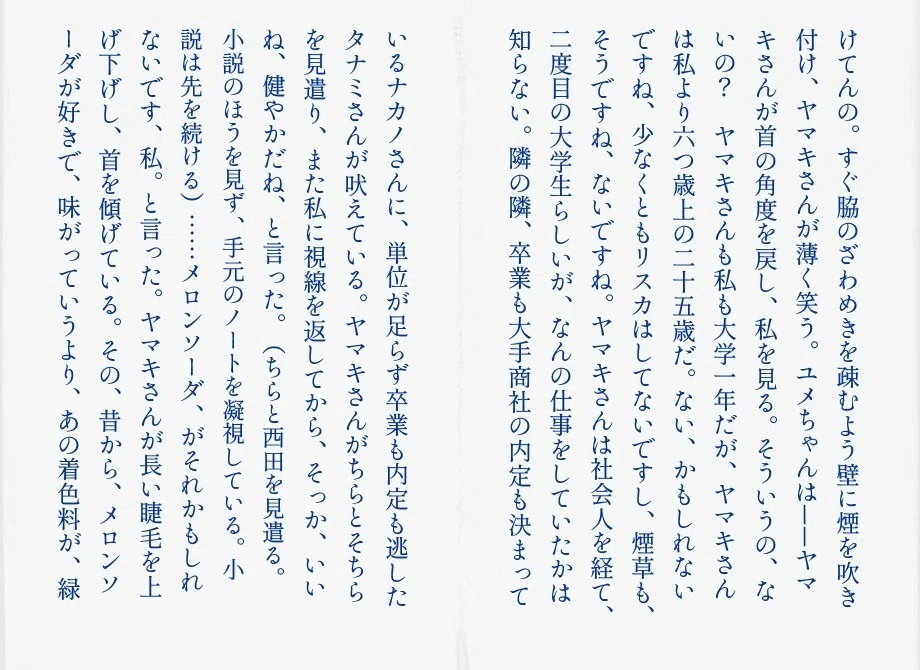 けてんの。すぐ脇のざわめきを疎むよう壁に煙を吹き
付け、ヤマキさんが薄く笑う。ユメちゃんは――ヤマ
キさんが首の角度を戻し、私を見る。そういうの、な
いの？　ヤマキさんも私も大学一年だが、ヤマキさん
は私より六つ歳上の二十五歳だ。ない、かもしれない
ですね、少なくともリスカはしてないですし、煙草も、
そうですね、ないですね。ヤマキさんは社会人を経て、
二度目の大学生らしいが、なんの仕事をしていたかは
知らない。隣の隣、卒業も大手商社の内定も決まって
いるナカノさんに、単位が足らず卒業も内定も逃した
タナミさんが吠えている。ヤマキさんがちらとそちら
を見遣り、また私に視線を返してから、そっか、いい
ね、健やかだね、と言った。（ちらと西田を見遣る。
小説のほうを見ず、手元のノートを凝視している。小
説は先を続ける）……メロンソーダ、がそれかもしれ
ないです、私。と言った。ヤマキさんが長い睫毛を上
げ下げし、首を傾げている。その、昔から、メロンソ
ーダが好きで、味がっていうより、あの着色料が、緑